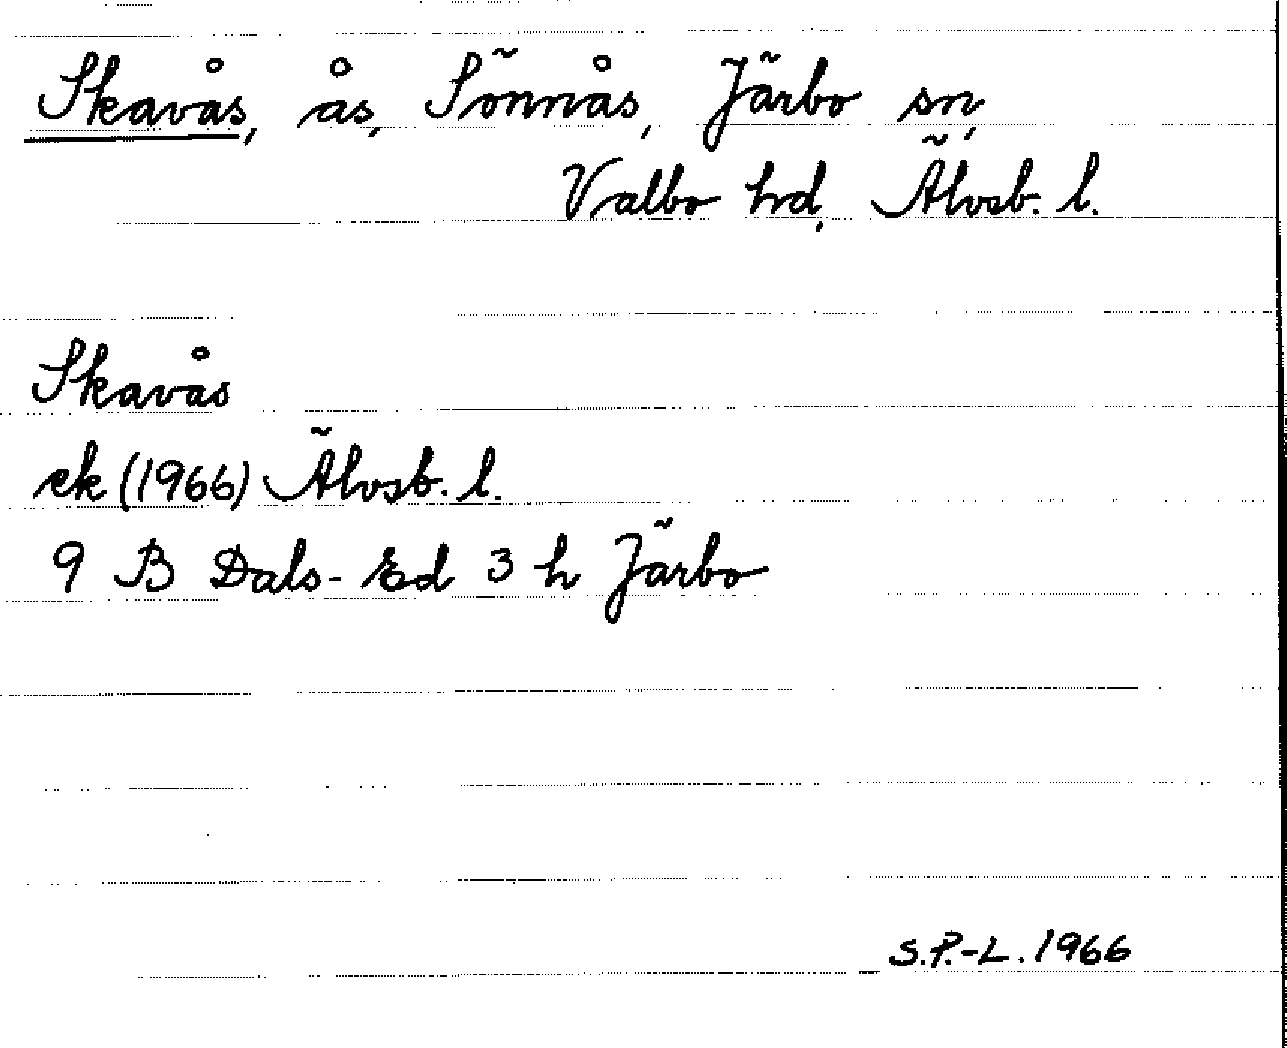 Skavås, ås, Sönnås, Järbo sn,
Valbo hd, Älvsb. l.
Skavås
ek (1966) Älvsb. l.
9 B Dals-Ed 3 h Järbo
S.P.-L. 1966